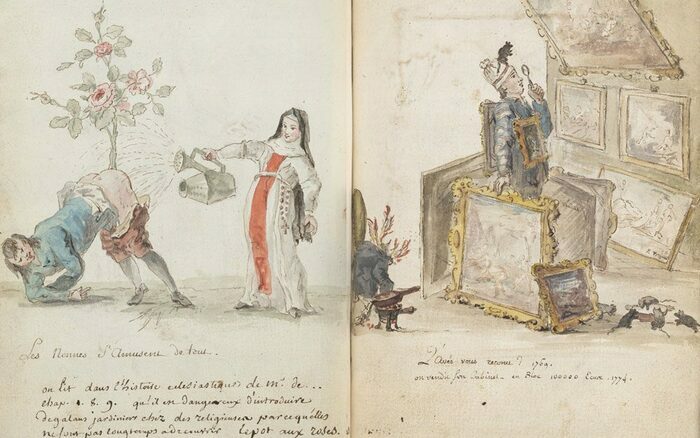 Les Nonnes s'Amusent de tout..
on lit dans l'histoire eclesiastique de Mr. de...
chap. 1. 8. 9. qu'il en dangereux d'introduire
de galans jardiniers chez des religieuses parcequ'elles
ne font pas longtemps adecouvrir le pot aux roses.
L'Aves vous reconu? 1760.
on vendit son Cabinet en Bloc 100000 Ecux. 1774.